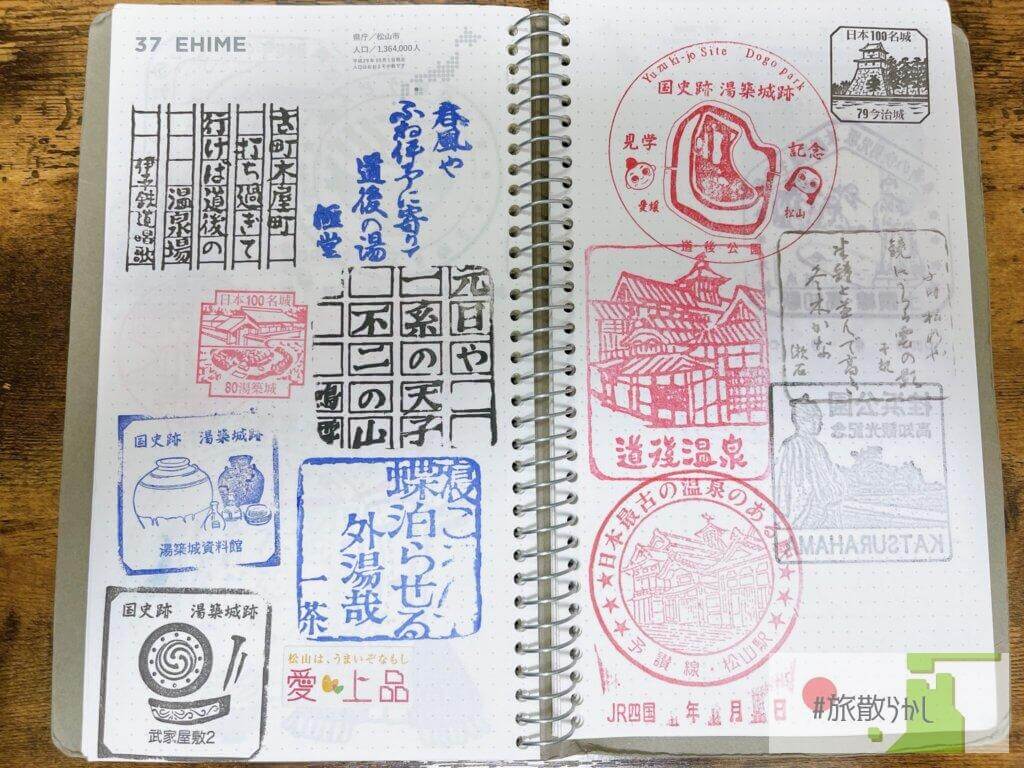 37 EHIME
県庁／松山市
人口／1,364,000人
古町木屋町
打ち過ぎて
行けば道後の
温泉場
伊予鉄道唱歌
春風や
ふね伊予に寄りて
道後の湯
極堂
日本100名城
80湯築城
元日や
一系の天子
不二の山
鳴雪
国史跡 湯築城跡
湯築城資料館
寝ころんで
蝶泊らせる
外湯哉
一茶
国史跡 湯築城跡
武家屋敷2
松山は、うまいぞなもし
愛上品
Yuzuki-jo Site Dogo park
国史跡 湯築城跡
見学
記念
愛媛
松山
道後公園
日本100名城
79今治城
道後温泉
子規
生壁と並んで高き
冬木かな
漱石
桂浜公園
高知観光記念
KATSURAHAMA
日本最古の温泉のある
予讃線・松山駅
JR四国 年 月 日
#旅散らかし